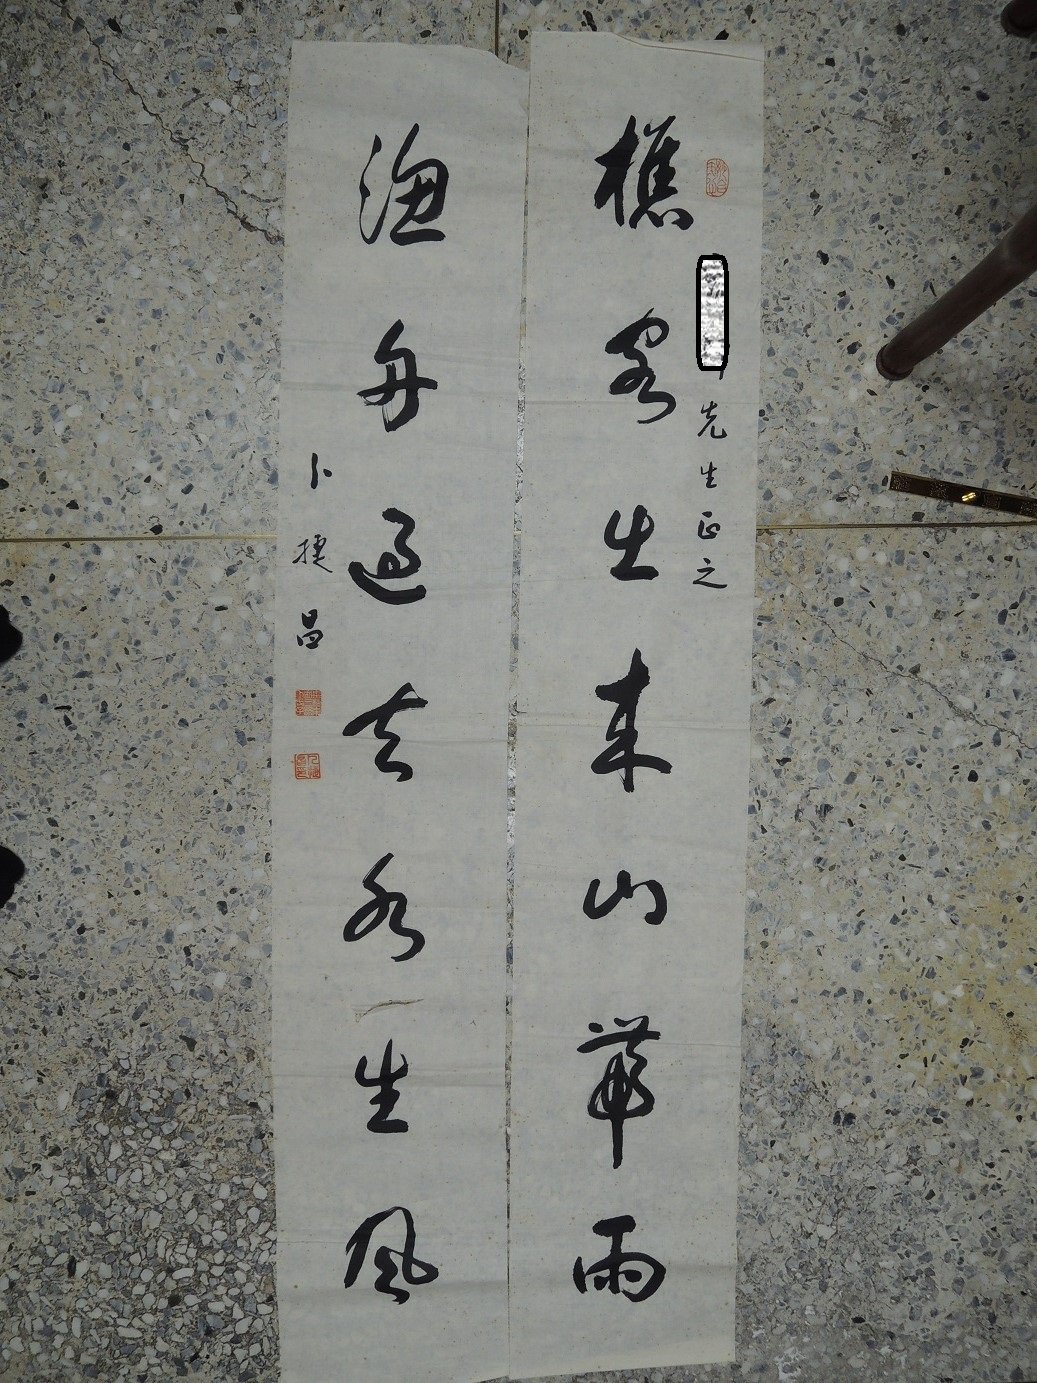 樵客出來山帶雨
先生正之
漁舟過去水生風
卜捷昌